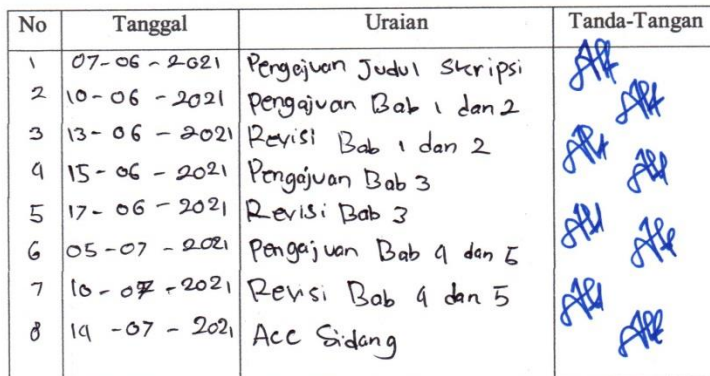 No Tanggal Uraian Tanda-Tangan
1 07-06-2021 Pengajuan Judul Skripsi
2 10-06-2021 Pengajuan Bab 1 dan 2
3 13-06-2021 Revisi Bab 1 dan 2
4 15-06-2021 Pengajuan Bab 3
5 17-06-2021 Revisi Bab 3
6 05-07-2021 Pengajuan Bab 4 dan 5
7 10-07-2021 Revisi Bab 4 dan 5
8 14-07-2021 Acc Sidang